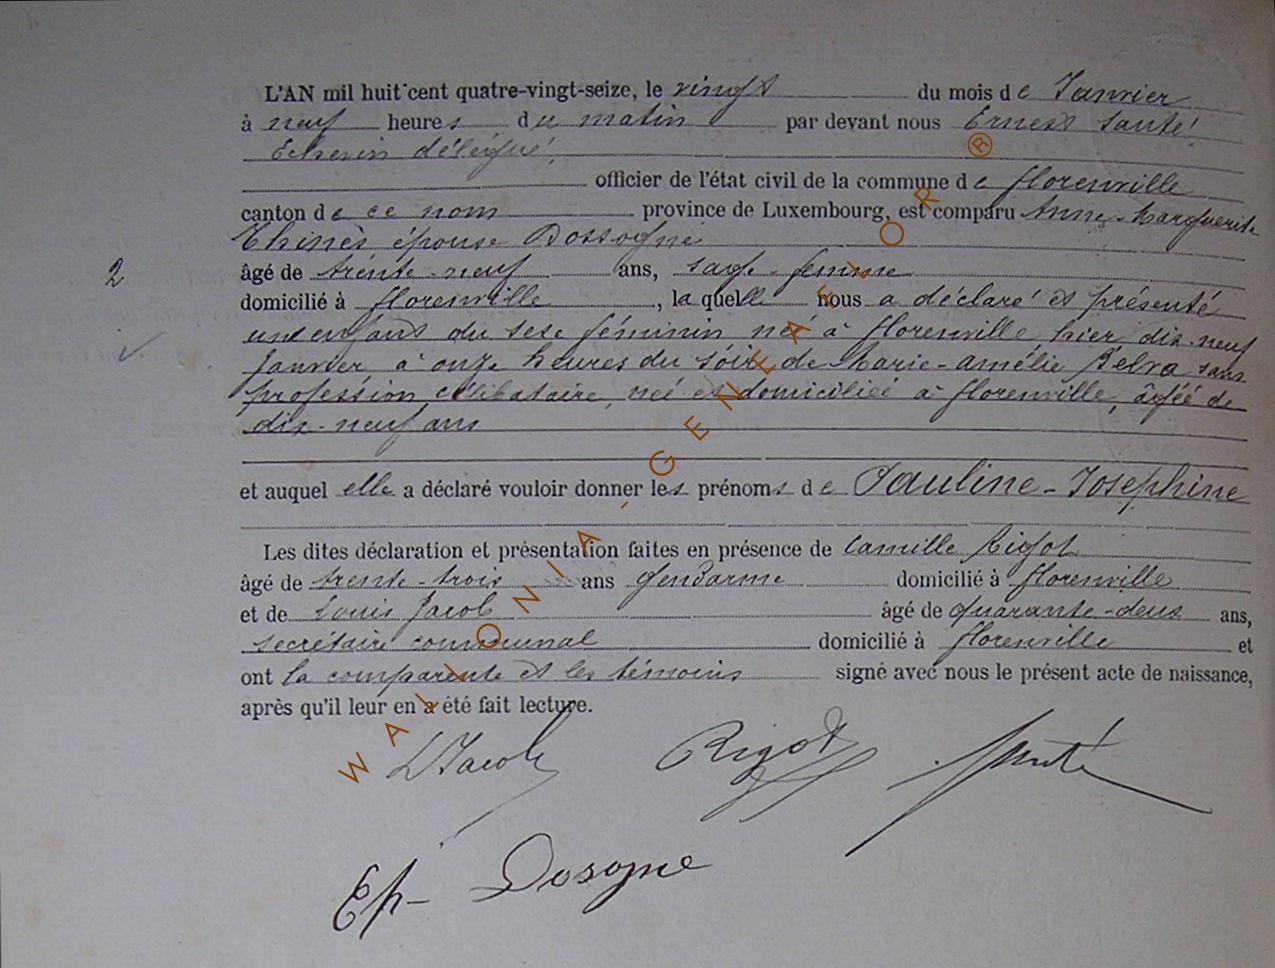 L'AN mil huit cent quatre-vingt-seize, le vingt du mois de Janvier
à neuf heures du matin par devant nous Ernest Santé
Echevin délégué,
officier de l'état civil de la commune de florenville
canton de ce nom province de Luxembourg, est comparu Anne-Marguerite
Thinès épouse Dossogne
2
âgé de trente-neuf ans, sage-femme
domicilié à florenville, la quelle nous a déclaré et présenté
un enfant du sexe féminin né à florenville, hier dix-neuf
Janvier à onze heures du soir de Marie-Amélie sans
profession célibataire, née et domiciliée à florenville, âgée de
dix-neuf ans
et auquel elle a déclaré vouloir donner les prénoms de Pauline-Josephine
Les dites déclaration et présentation faites en présence de Camille Rigot
âgé de trente-trois ans gendarme domicilié à florenville
et de Louis Jacob âgé de quarante-deux ans,
secrétaire communal domicilié à florenville et
ont la comparente et les témoins signé avec nous le présent acte de naissance,
après qu'il leur en a été fait lecture.
LJacob Rigot Santé
Ep- Dosogne
WALLONIA-GENEALOR®